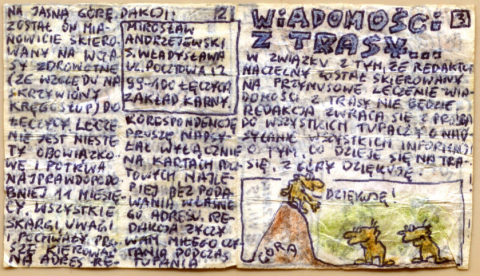 NA JASNĄ GÓRĘ,
ZOSTAŁ ON MIA-
NOWICIE SKIERO-
WANY NA WCZA
SY ZDROWOTNE
(ZE WZGLĘDU NA
SKRZYWIONY
KRĘGOSŁUP) DO
ŁĘCZYCY. LECZE
NIE JEST NIESTE
TY OBOWIĄZKO
WE I POTRWA
NAJPRAWDOPODO
BNIEJ 11 MIESIĘ-
CY. WSZYSTKIE
SKARGI, UWAGI
I POCHWAŁY PRO
SZĘ KIEROWAĆ
NA ADRES RE-
DAKCJI: 2
MIROSŁAW
ANDRZEJEWSKI
S. WŁADYSŁAWA
UL. POCZTOWA 12
99-100 ŁĘCZYCA
ZAKŁAD KARNY.
KORESPONDENCJĘ
PROSZĘ NADSY-
ŁAĆ WYŁĄCZNIE
NA KARTACH POCZ
TOWYCH NAJLE-
PIEJ BEZ PODA
WANIA WŁASNE
GO ADRESU. RE-
DAKCJA ŻYCZY
WAM MIŁEGO CZY
TANIA PODCZAS
TUPTANIA
3
WIADOMOŚCI
Z TRASY...
W ZWIĄZKU Z TYM, ŻE REDAKTOR
NACZELNY ZOSTAŁ SKIEROWANY
NA PRZYMUSOWE LECZENIE WIA-
DOMOŚCI Z TRASY NIE BĘDZIE.
REDAKCJA ZWRACA SIĘ Z PROŚBĄ
DO WSZYSTKICH TUPACZY O NAD
SYŁANIE WSZYSTKICH INFORMACJI
O TYM, CO DZIEJE SIĘ NA TRA-
SIE, Z GÓRY DZIĘKUJĘ.
DZIĘKUJĘ!
GÓRA